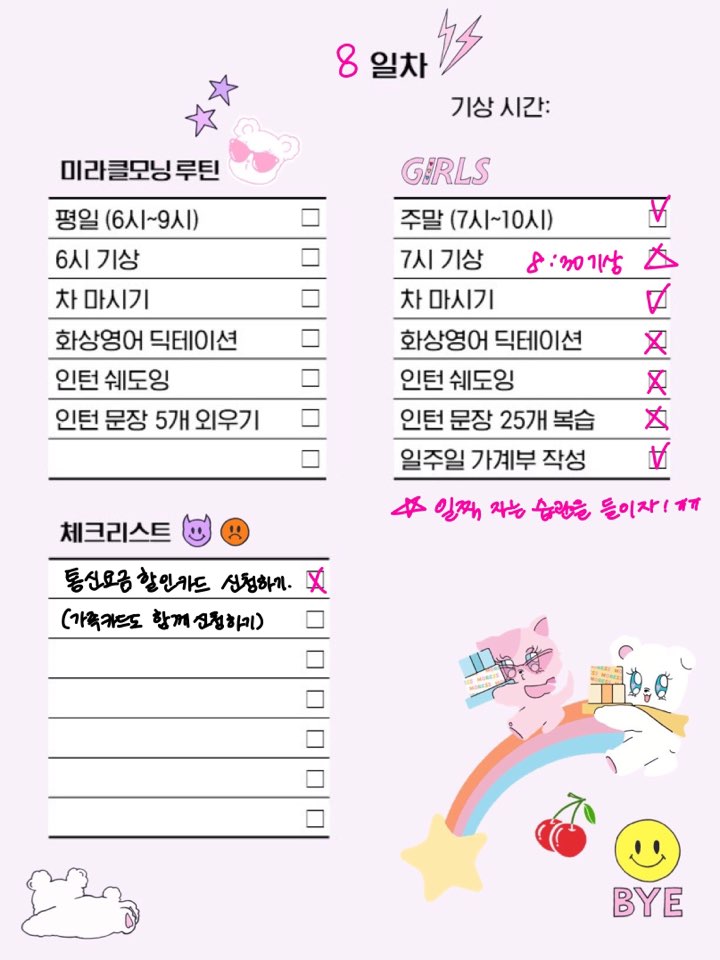 8 일차
기상 시간:
미라클모닝 루틴
평일 (6시~9시)
6시 기상
차 마시기
화상영어 딕테이션
인턴 쉐도잉
인턴 문장 5개 외우기
GIRLS
주말 (7시~10시)
7시 기상 8:30 기상
차 마시기
화상영어 딕테이션
인턴 쉐도잉
인턴 문장 25개 복습
일주일 가계부 작성
☆ 일찍 자는 습관을 들이자! ㅠㅠ
체크리스트
통신요금 할인카드 신청하기.
(가족카드도 함께 신청하기)
BYE